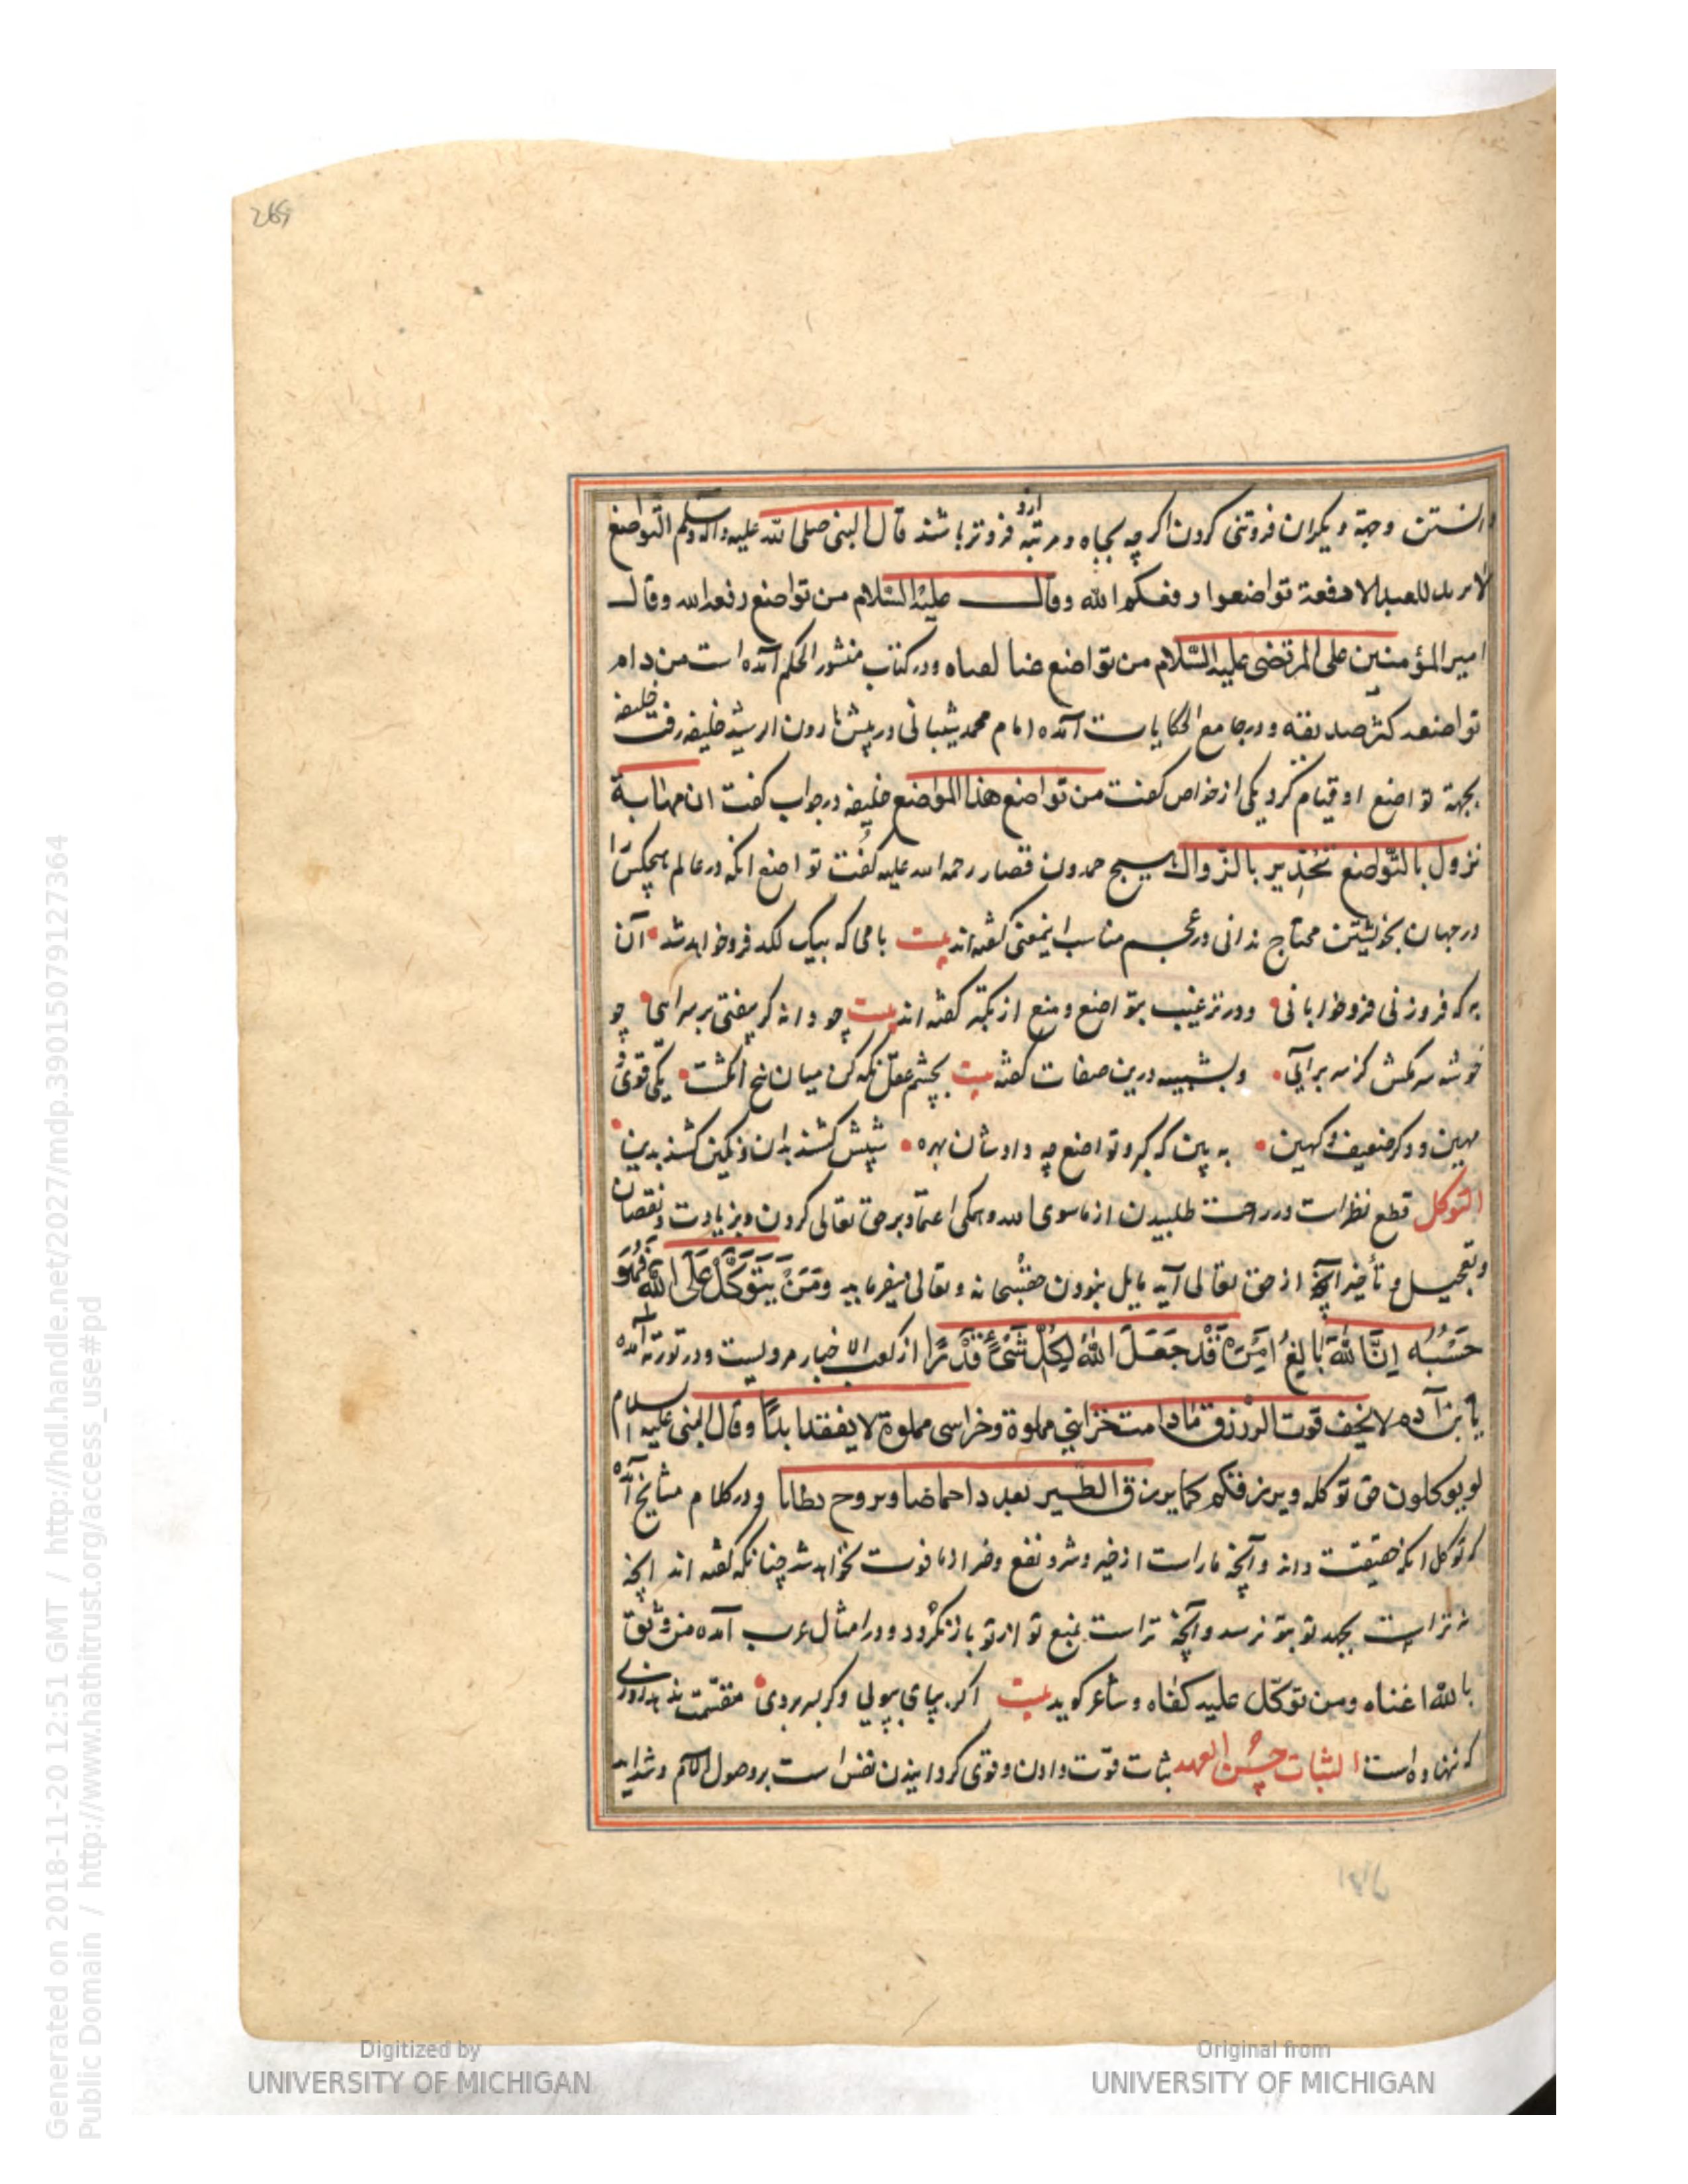 269
دانستن وجهة دیکران فروتنی کردن اکرچه بجاه ومرتبه ازو فروتر باشند قال النبی صلی الله علیه واله وسلم التواضع
لا یزید للعبد الا رفعة تواضعوا رفعکم الله وقال علیه السّلام من تواضع رفعه الله وقال
امیر المؤمنین علی المرتضی علیه السّلام من تواضع ودر کتاب منشور الحکم آمده است من دام
تواضعه کثر صدیقه ودر جامع الحکایات آمده امام محمد شیبانی در پیش هارون الرشید خلیفه رفت خلیفه
بجهة تواضع او قیام کرد یکی از خواص کفت من تواضع هذا المواضع خلیفه در جواب کفت ان مهابة
نزول بالتّواضع تحذیر بالزّوال حمدون قصار رحمه الله علیه کفت تواضع انکه در عالم هیچکس را
در جهان بخویشتن محتاج ندانی مناسب اینمعنی کفته اند بیت بامی که بیک لکد فرو خواهد شد آن
به که فرو زنی فرو خوابانی ودر ترغیب بتواضع ومنع از تکبّر کفته اند بیت چو دانه کر بیفتی بر سر آیی چو
خوشه سر مکش کز سر برآیی وبشبیه درین صفات کفته بیت بچشم عقل نکه کن میان پنج انکشت یکی قوی و
مهین و دکر ضعیف وکهین به بین که کبر وتواضع چه داد شان بهره شپش کشند بدان ونکین کشند بدین
التوکل قطع نظرات ودر راحت طلبیدن از ماسوی الله وهمکی اعتماد بر حق تعالی کردن وبزیادت ونقصان
وتعجیل وتأخیر آنچه از حق تعالی آید مایل نبودن حق سبحانه وتعالی میفرماید وَمَنْ یَتَوَکَّلْ عَلَی اللّٰهِ فَهُوَ
حَسْبُهُ اِنَّ اللّٰهَ بَالِغُ اَمْرِهِ قَدْ جَعَلَ اللّٰهُ لِکُلِّ شَیْءٍ قَدْرًا از کعب الاخبار مرویست ودر توریة آمده
یا بن آدم لا تخف فوت الرزق مادامت خزاینی مملوة وخزاینی مملوة لا ینفد ابدًا وقال النبی علیه السلام
لو توکلون حق توکله ویرزقکم کما یرزق الطّیر تغدوا خماصا وتروح بطانا ودر کلام مشایخ آمده
که توکل آنکه حقیقت داند وآنچه ما راست از خیر وشر ونفع وضر از ما فوت نخواهد شد چنانکه کفته اند آنچه
نه تراست بجهد تو بتو نرسد وآنچه تراست بمنع تو از تو باز نکردد ودر امثال عرب آمده من وثق
بالله اغناه ومن توکّل علیه کفاه وشاعر کوید بیت اکر بپای بپویی وکر بسر بروی مقسّمت ندهد روزی
که ننهاده است الثبات حسن العهد ثبات قوّت دادن وقوی کردانیدن نفس است بر وصول آلام وشداید
Generated on 2018-11-20 12:51 GMT / http://hdl.handle.net/2027/mdp.39015079127364
Public Domain / http://www.hathitrust.org/access_use#pd
Digitized by
UNIVERSITY OF MICHIGAN
Original from
UNIVERSITY OF MICHIGAN